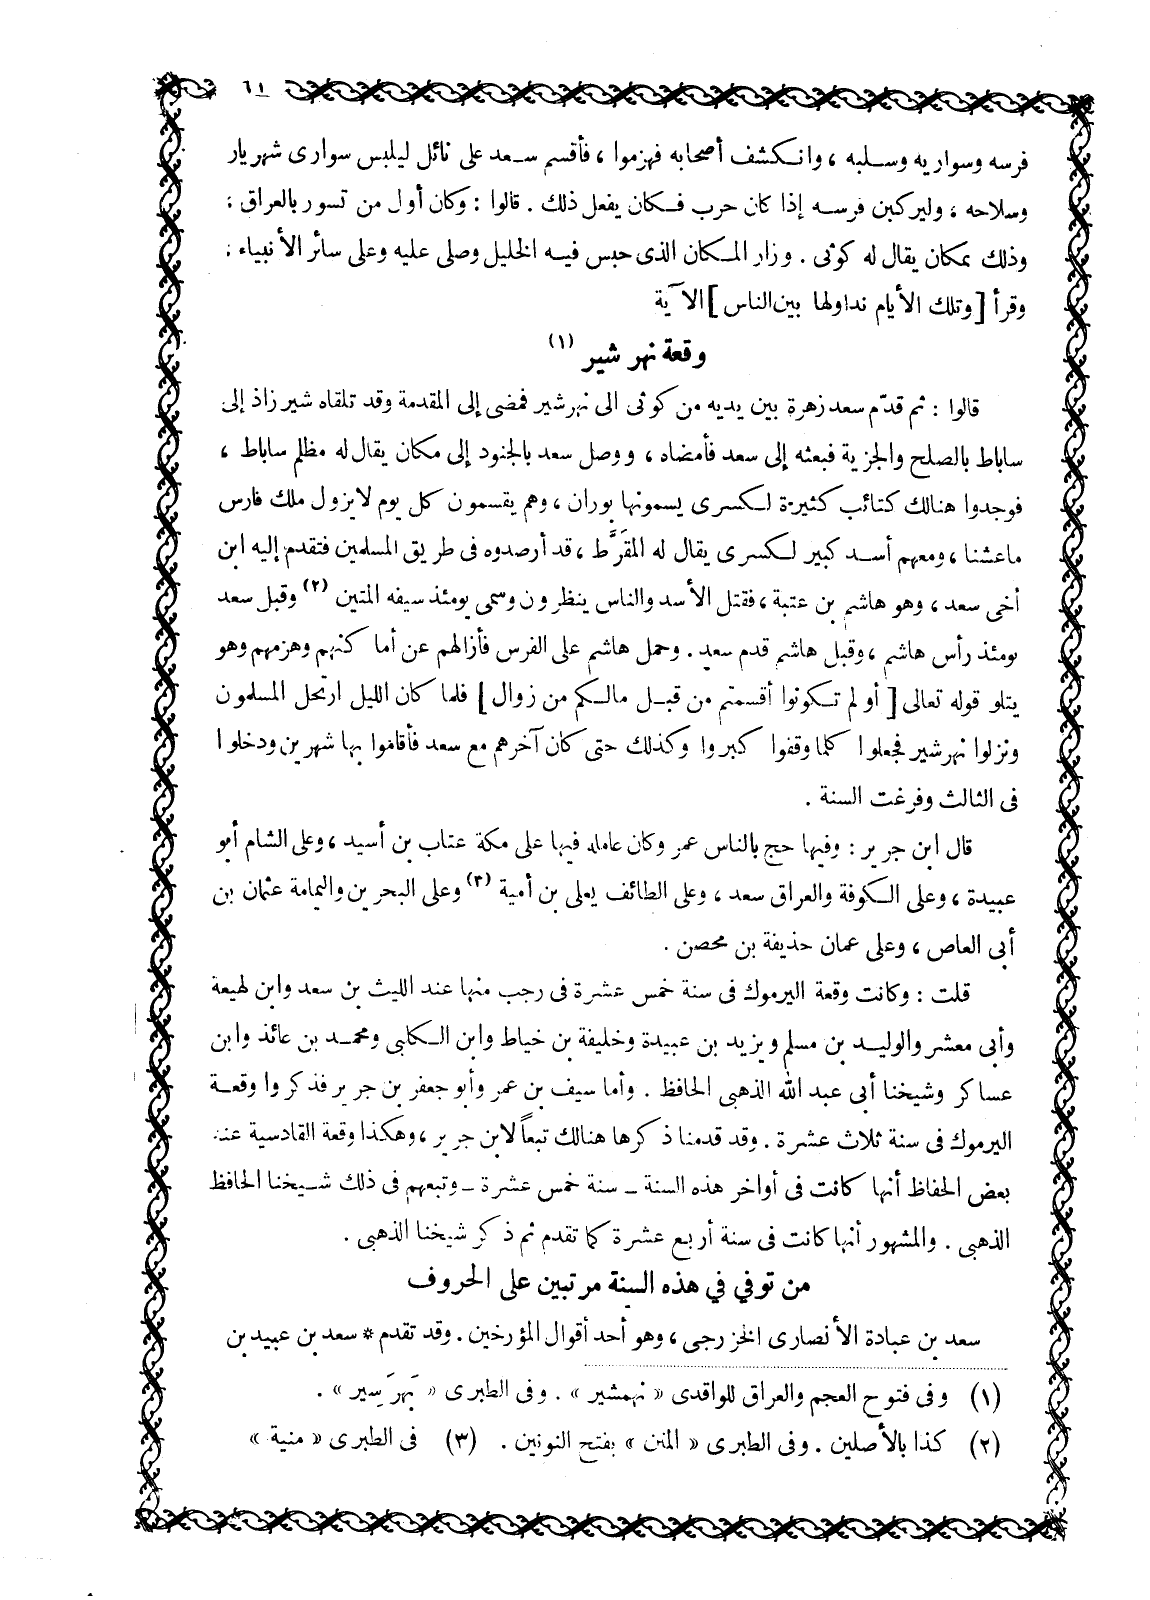 ٦١
فرسه وسواريه وسلبه ، وانكشف أصحابه فهزموا ، فأقسم سعد على نائل ليلبس سوارى شهريار
وسلاحه ، وليركبن فرسه إذا كان حرب فكان يفعل ذلك . قالوا : وكان أول من تسور بالعراق ؛
وذلك بمكان يقال له كوثى . وزار المكان الذى حبس فيه الخليل وصلى عليه وعلى سائر الأنبياء ؛
وقرأ [ وتلك الأيام نداولها بين الناس ] الآية
وقعة نهر شير (١)
قالوا : ثم قدّم سعد زهرة بين يديه من كوثى الى نهرشير فمضى إلى المقدمة وقد تلقاه شير زاذ إلى
ساباط بالصلح والجزية فبعثه إلى سعد فأمضاه ، ووصل سعد بالجنود إلى مكان يقال له مظلم ساباط ،
فوجدوا هنالك كتائب كثيرة لكسرى يسمونها بوران ، وهم يقسمون كل يوم لا يزول ملك فارس
ما عشنا ، ومعهم أسد كبير لكسرى يقال له المقرَّط ، قد أرصدوه فى طريق المسلمين فتقدم إليه ابن
أخى سعد ، وهو هاشم بن عتبة ، فقتل الأسد والناس ينظرون وسمى يومئذ سيفه المتين (٢) وقبل سعد
يومئذ رأس هاشم ، وقبل هاشم قدم سعد . وحمل هاشم على الفرس فأزالهم عن أماكنهم وهزمهم وهو
يتلو قوله تعالى [ أو لم تكونوا أقسمتم من قبل مالكم من زوال ] فلما كان الليل ارتحل المسلمون
ونزلوا نهرشير فجعلوا كلما وقفوا كبروا وكذلك حتى كان آخرهم مع سعد فأقاموا بها شهرين ودخلوا
فى الثالث وفرغت السنة .
قال ابن جرير : وفيها حج بالناس عمر وكان عامله فيها على مكة عتاب بن أسيد ، وعلى الشام أبو
عبيدة ، وعلى الكوفة والعراق سعد ، وعلى الطائف يعلى بن أمية (٣) وعلى البحرين واليمامة عثمان بن
أبى العاص ، وعلى عمان حذيفة بن محصن .
قلت : وكانت وقعة اليرموك فى سنة خمس عشرة فى رجب منها عند الليث بن سعد وابن لهيعة
وأبى معشر والوليد بن مسلم ويزيد بن عبيدة وخليفة بن خياط وابن الكلبى ومحمد بن عائذ وابن
عساكر وشيخنا أبى عبد الله الذهبى الحافظ . وأما سيف بن عمر وأبو جعفر بن جرير فذكروا وقعة
اليرموك فى سنة ثلاث عشرة . وقد قدمنا ذكرها هنالك تبعاً لابن جرير ، وهكذا وقعة القادسية عند
بعض الحفاظ أنها كانت فى أواخر هذه السنة ـ سنة خمس عشرة ـ وتبعهم فى ذلك شيخنا الحافظ
الذهبى . والمشهور أنها كانت فى سنة أربع عشرة كما تقدم ثم ذكر شيخنا الذهبى .
من توفي في هذه السنة مرتبين على الحروف
سعد بن عبادة الأنصارى الخزرجى ، وهو أحد أقوال المؤرخين . وقد تقدم * سعد بن عبيد بن
(١) وفى فتوح العجم والعراق للواقدى « نهمشير » . وفى الطبرى « بَهرَ سِير » .
(٢) كذا بالأصلين . وفى الطبرى « المنن » بفتح النونين . (٣) فى الطبرى « منية »